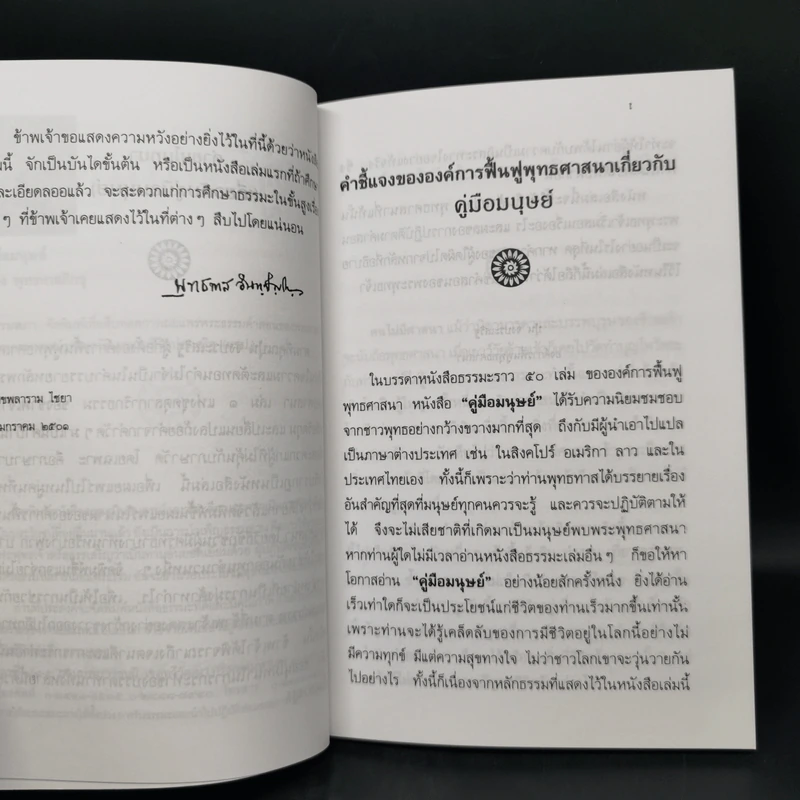 ข้าพเจ้าขอแสดงความหวังอย่างยิ่งไว้ในที่นี้ด้วยว่าหนังสือ
นี้ จักเป็นบันไดขั้นต้น หรือเป็นหนังสือเล่มแรกที่ถ้าศึกษา
ละเอียดลออแล้ว จะสะดวกแก่การศึกษาธรรมะในขั้นสูงเรื่อง
ๆ ที่ข้าพเจ้าเคยแสดงไว้ในที่ต่าง ๆ สืบไปโดยแน่นอน
พุทธทาส อินทปัญโญ
ขพลาราม ไชยา
มกราคม ๒๕๐๑
คำชี้แจงขององค์การฟื้นฟูพุทธศาสนาเกี่ยวกับ
คู่มือมนุษย์
ในบรรดาหนังสือธรรมะราว ๕๐ เล่ม ขององค์การฟื้นฟู
พุทธศาสนา หนังสือ “คู่มือมนุษย์” ได้รับความนิยมชมชอบ
จากชาวพุทธอย่างกว้างขวางมากที่สุด ถึงกับมีผู้นำเอาไปแปล
เป็นภาษาต่างประเทศ เช่น ในสิงคโปร์ อเมริกา ลาว และใน
ประเทศไทยเอง ทั้งนี้ก็เพราะว่าท่านพุทธทาสได้บรรยายเรื่อง
อันสำคัญที่สุดที่มนุษย์ทุกคนควรจะรู้ และควรจะปฏิบัติตามให้
ได้ จึงจะไม่เสียชาติที่เกิดมาเป็นมนุษย์พบพระพุทธศาสนา
หากท่านผู้ใดไม่มีเวลาอ่านหนังสือธรรมะเล่มอื่น ๆ ก็ขอให้หา
โอกาสอ่าน “คู่มือมนุษย์” อย่างน้อยสักครั้งหนึ่ง ยิ่งได้อ่าน
เร็วเท่าใดก็จะเป็นประโยชน์แก่ชีวิตของท่านเร็วมากขึ้นเท่านั้น
เพราะท่านจะได้รู้เคล็ดลับของการมีชีวิตอยู่ในโลกนี้อย่างไม่
มีความทุกข์ มีแต่ความสุขทางใจ ไม่ว่าชาวโลกเขาจะวุ่นวายกัน
ไปอย่างไร ทั้งนี้ก็เนื่องจากหลักธรรมที่แสดงไว้ในหนังสือเล่มนี้